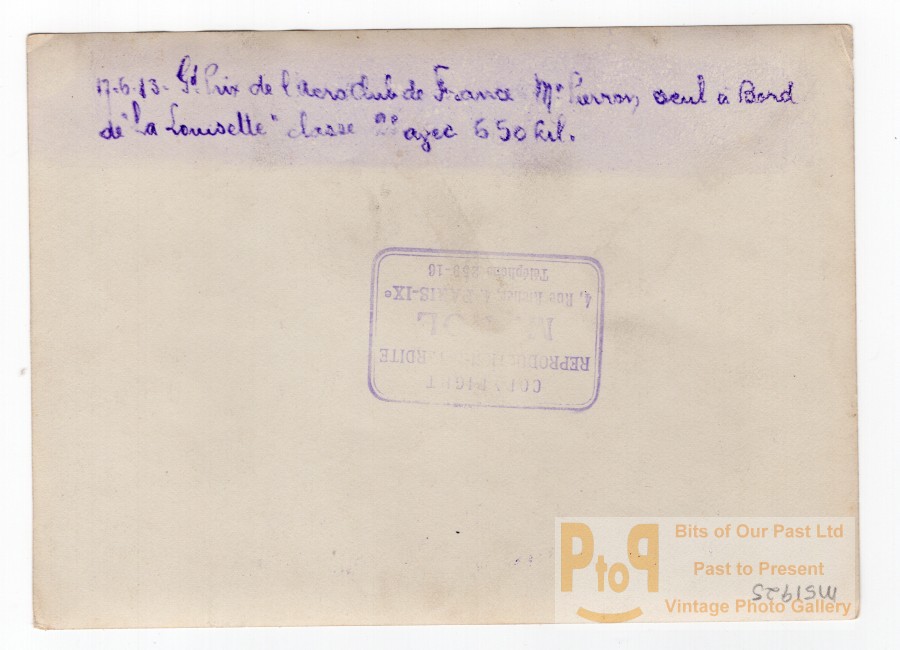 17-6-13- Gd Prix de l'Aero Club de France Mr Pierron, seul à Bord
de "La Louisette" classe 2e avec 650 kil.
COPYRIGHT
REPRODUCTION INTERDITE
4, Rue Richer, 4, PARIS-IXe
Téléphone 259-16
PtoP
Bits of Our Past Ltd
Past to Present
Vintage Photo Gallery
MS1925